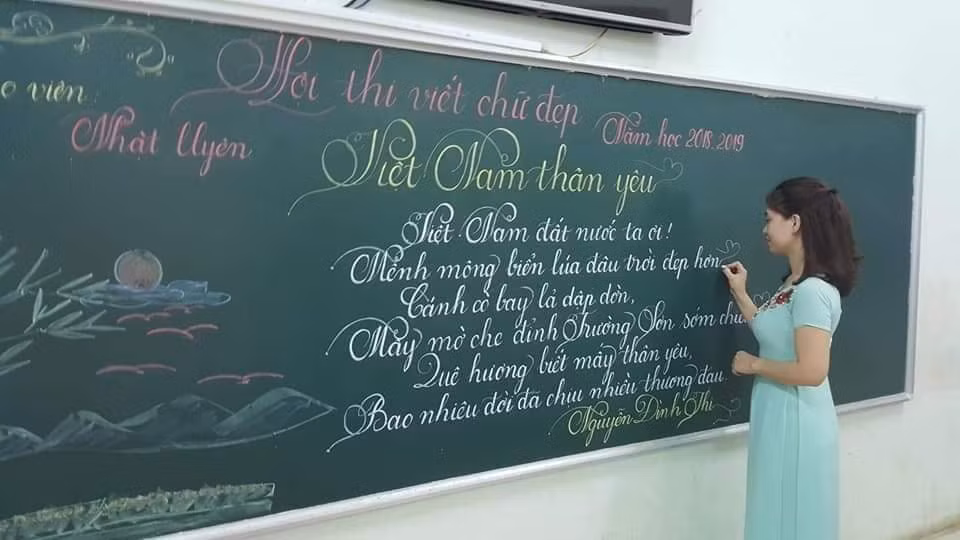 o viên:
Nhật Uyên
Hội thi viết chữ đẹp
Năm học 2018.2019
Việt Nam thân yêu
Việt Nam đất nước ta ơi!
Mênh mông biển lúa đâu trời đẹp hơn
Cánh cò bay lả dập dờn,
Mây mờ che đỉnh Trường Sơn sớm chiều
Quê hương biết mấy thân yêu,
Bao nhiêu đời đã chịu nhiều thương đau.
Nguyễn Đình Thi